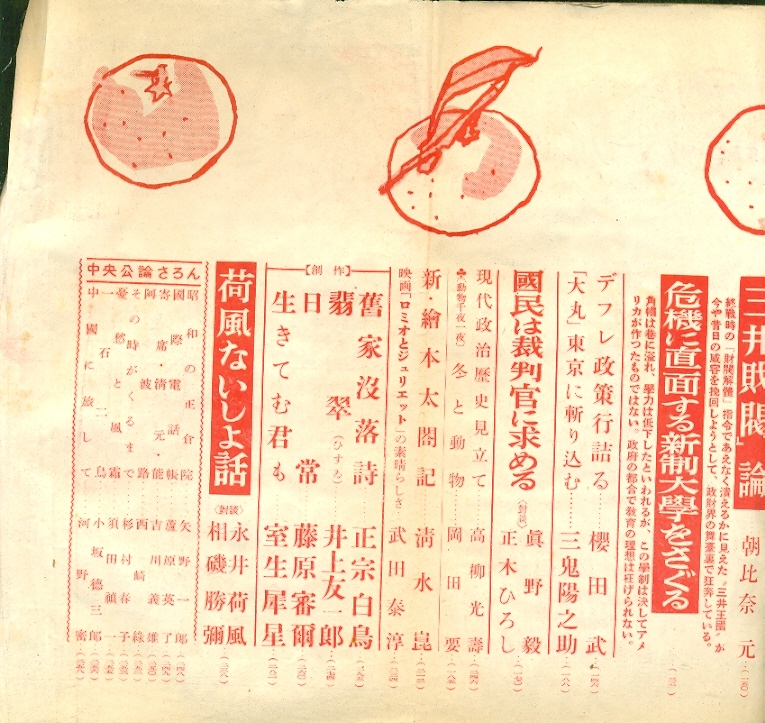 三井財閥」論
朝比奈元
終戦時の「財閥解體」指令であえなく潰えるかに見えた〝三井王國〟が
今や昔日の威容を挽回しようとして、政財界の舞臺裏で狂奔している。
危機に直面する新制大學をさぐる
角帽は巷に溢れ、學力は低下したといわれるが、この學制は決してアメ
リカが作つたものではない。政府の都合で教育の理想は枉げられない。
デフレ政策行詰る……櫻田武
「大丸」東京に斬り込む……三鬼陽之助
國民は裁判官に求める〈對談〉
眞野毅
正木ひろし
現代政治歴史見立て……高柳光壽
動物千夜一夜 冬と動物 岡田要
新・繪本太閤記……清水崑
映画「ロミオとジュリエット」の素晴らしさ 武田泰淳
【創作】
舊家没落詩 正宗白鳥
翡翠(ひすゐ) 井上友一郎
日常 藤原審爾
生きてむ君も 室生犀星
荷風ないしよ話
〈對談〉
永井荷風
相磯勝彌
中央公論さろん
昭和の正倉院 矢野一郎
國際電話帳 蘆原英了
寄席・清元・能 吉川義雄
阿波路 西崎緑
その時がくるまで 杉村春子
憂愁と風霜 須田禎一
一石二鳥 小坂徳三郎
中國に旅して 河野密